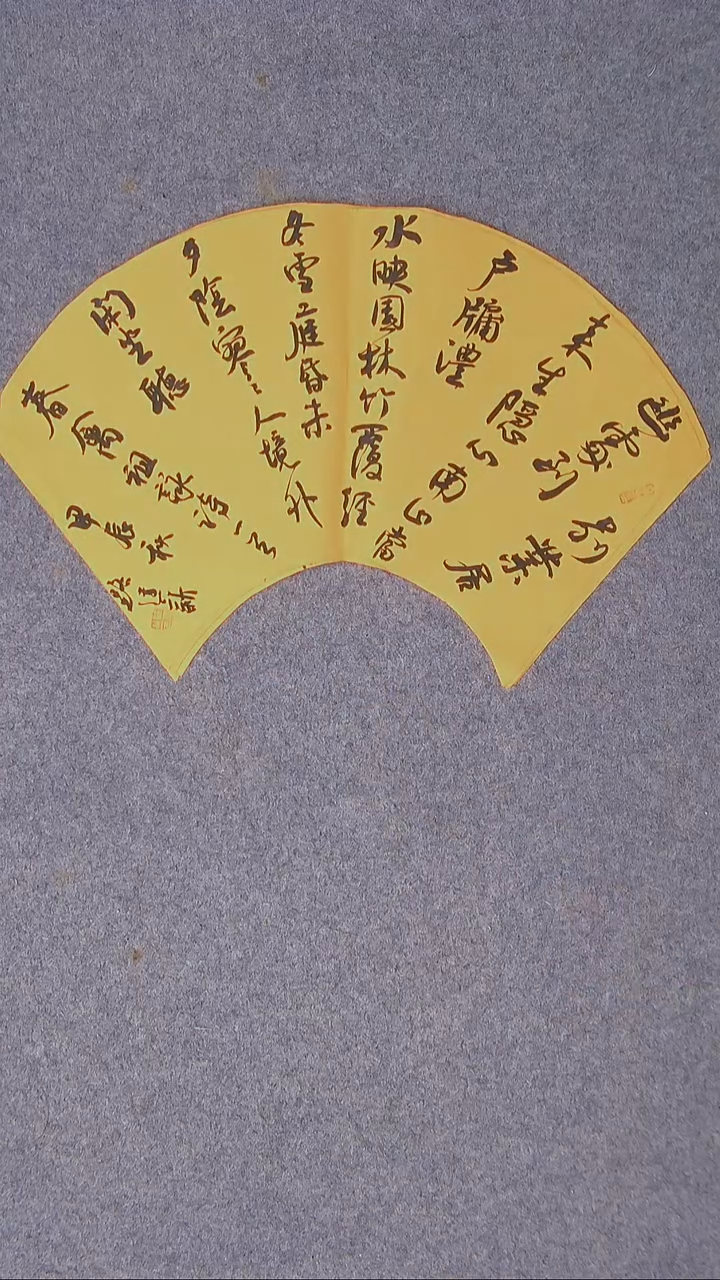 别業居
幽處到
来生隱心南山當
户牖澧
水映園林竹覆經
冬雪庭昏未
夕陰寥々人境外
閒坐聽
春禽祖詠詩一首
甲辰秋